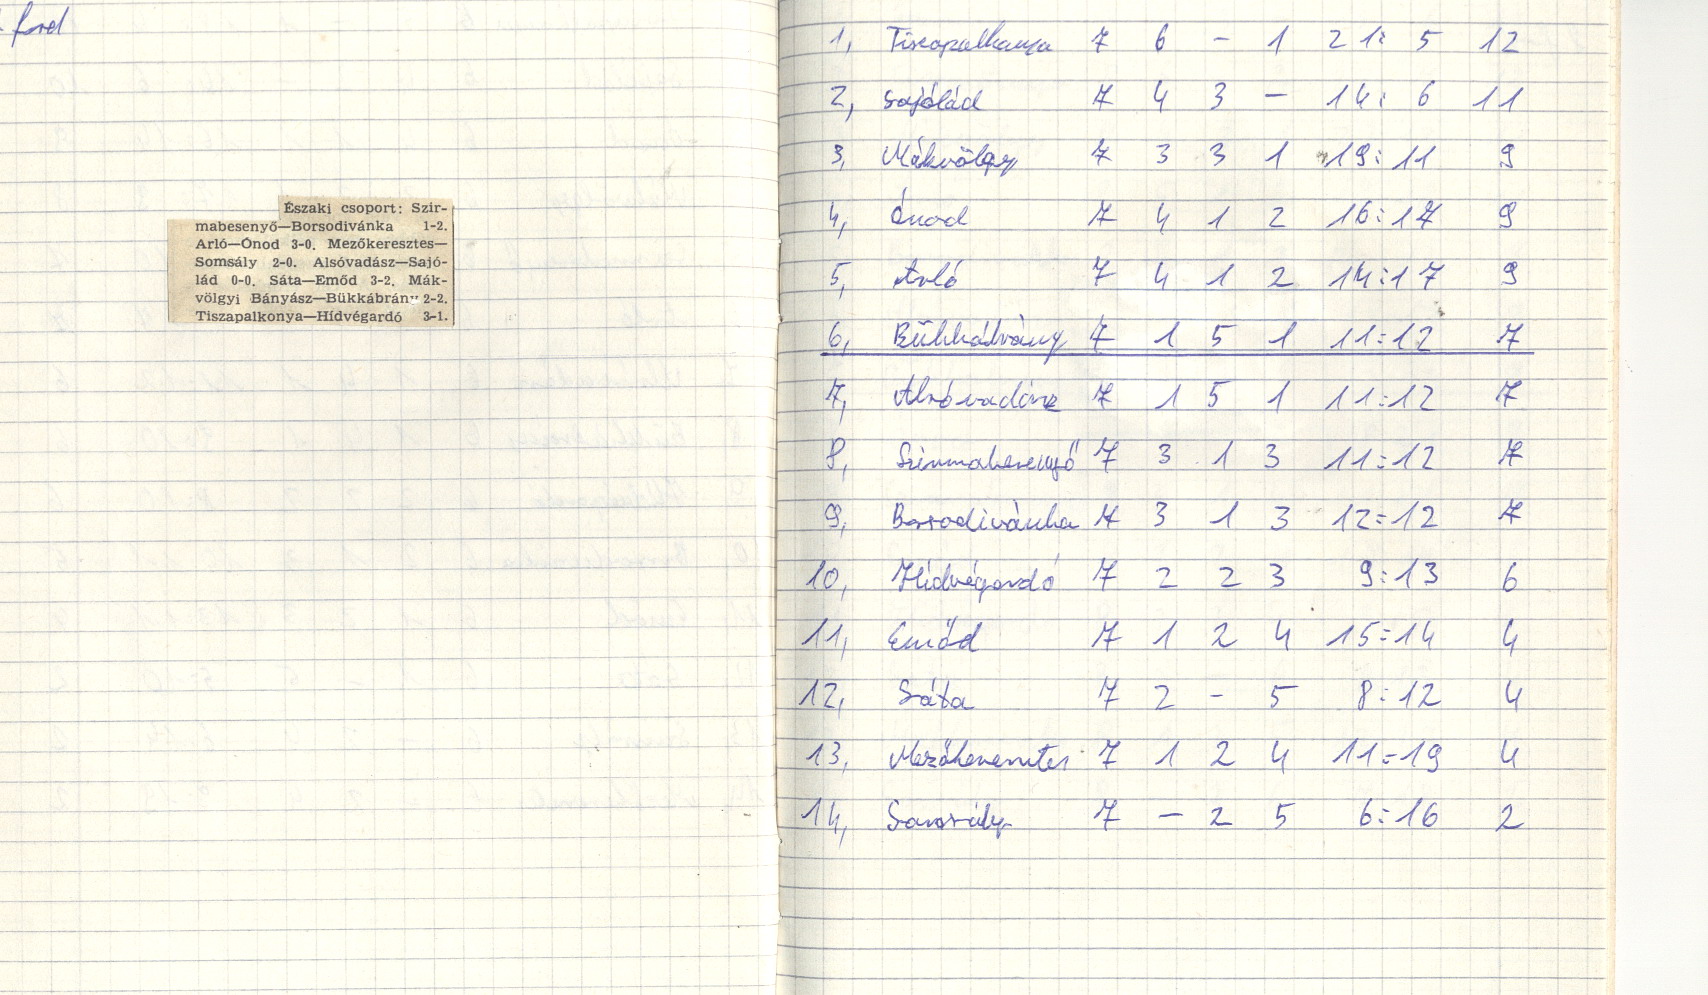 ford
Északi csoport: Szir-
mabesenyő—Borsodivánka 1-2.
Arló—Ónod 3-0. Mezőkeresztes—
Somsály 2-0. Alsóvadász—Sajó-
lád 0-0. Sáta—Emőd 3-2. Mák-
völgyi Bányász—Bükkábrány 2-2.
Tiszapalkonya—Hídvégardó 3-1.
1, Tiszapalkonya 7 6 - 1 21: 5 12
2, Sajólád 7 4 3 - 14: 6 11
3, Mákvölgy 7 3 3 1 19:11 9
4, Ónod 7 4 1 2 16:17 9
5, Arló 7 4 1 2 14:17 9
6, Bükkábrány 7 1 5 1 11:12 7
7, Alsóvadász 7 1 5 1 11:12 7
8, Szirmabesenyő 7 3 1 3 11:12 7
9, Borsodivánka 7 3 1 3 12:12 7
10, Hídvégardó 7 2 2 3 9:13 6
11, Emőd 7 1 2 4 15:14 4
12, Sáta 7 2 - 5 8:12 4
13, Mezőkeresztes 7 1 2 4 11:19 4
14, Somsály 7 - 2 5 6:16 2